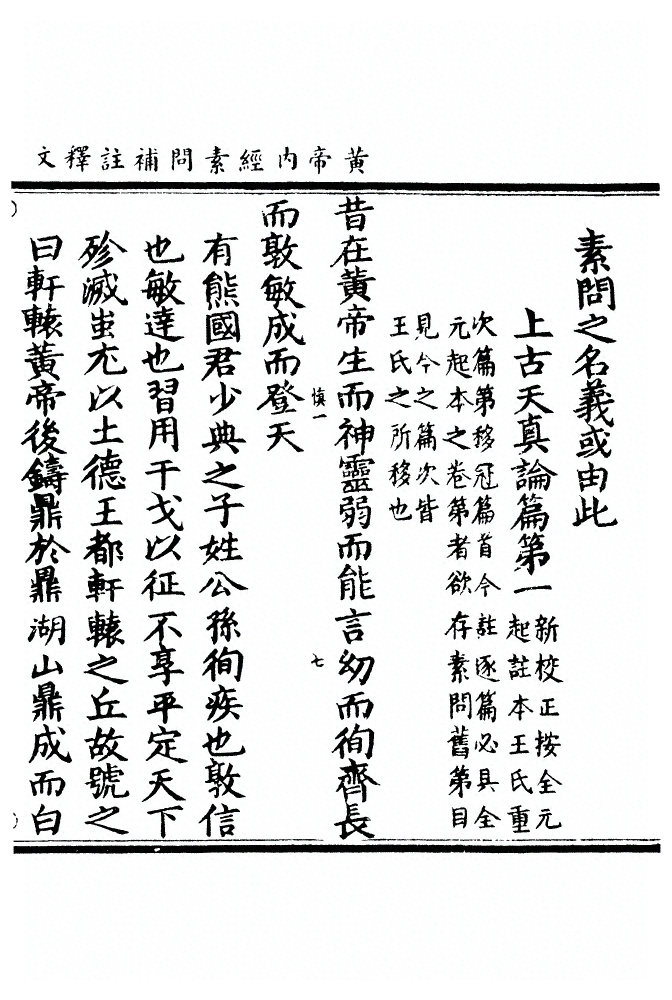 黄帝内經素問補註釋文
素問之名義或由此
上古天真論篇第一
新校正按全元
起註本王氏重
次篇第移冠篇首今註逐篇必具全
元起本之卷第者欲存素問舊第目
見今之篇次皆
王氏之所移也
昔在黄帝生而神靈弱而能言幼而徇齊長
而敦敏成而登天
慎一
七
有熊國君少典之子姓公孫徇疾也敦信
也敏達也習用干戈以征不享平定天下
殄滅蚩尤以土德王都軒轅之丘故號之
曰軒轅黄帝後鑄鼎於鼎湖山鼎成而白